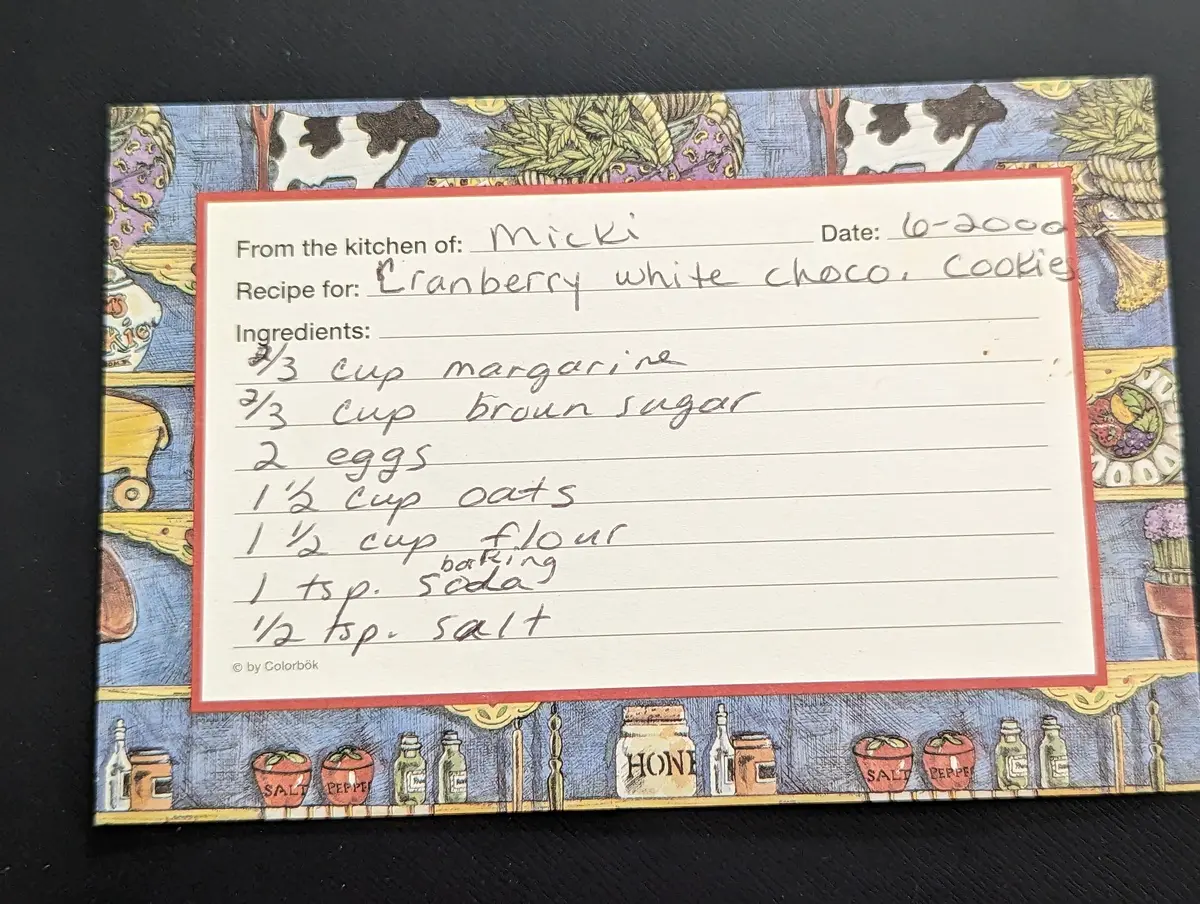 From the kitchen of: Micki Date: 6-2000
Recipe for: Cranberry white choco. Cookies
Ingredients:
2/3 cup margarine
2/3 cup broun sugar
2 eggs
1 1/2 cup oats
1 1/2 cup flour
baking
1 tsp. soda
1/2 tsp. salt
© by Colorbök
SALT PEPPE HONE SALT PEPPE